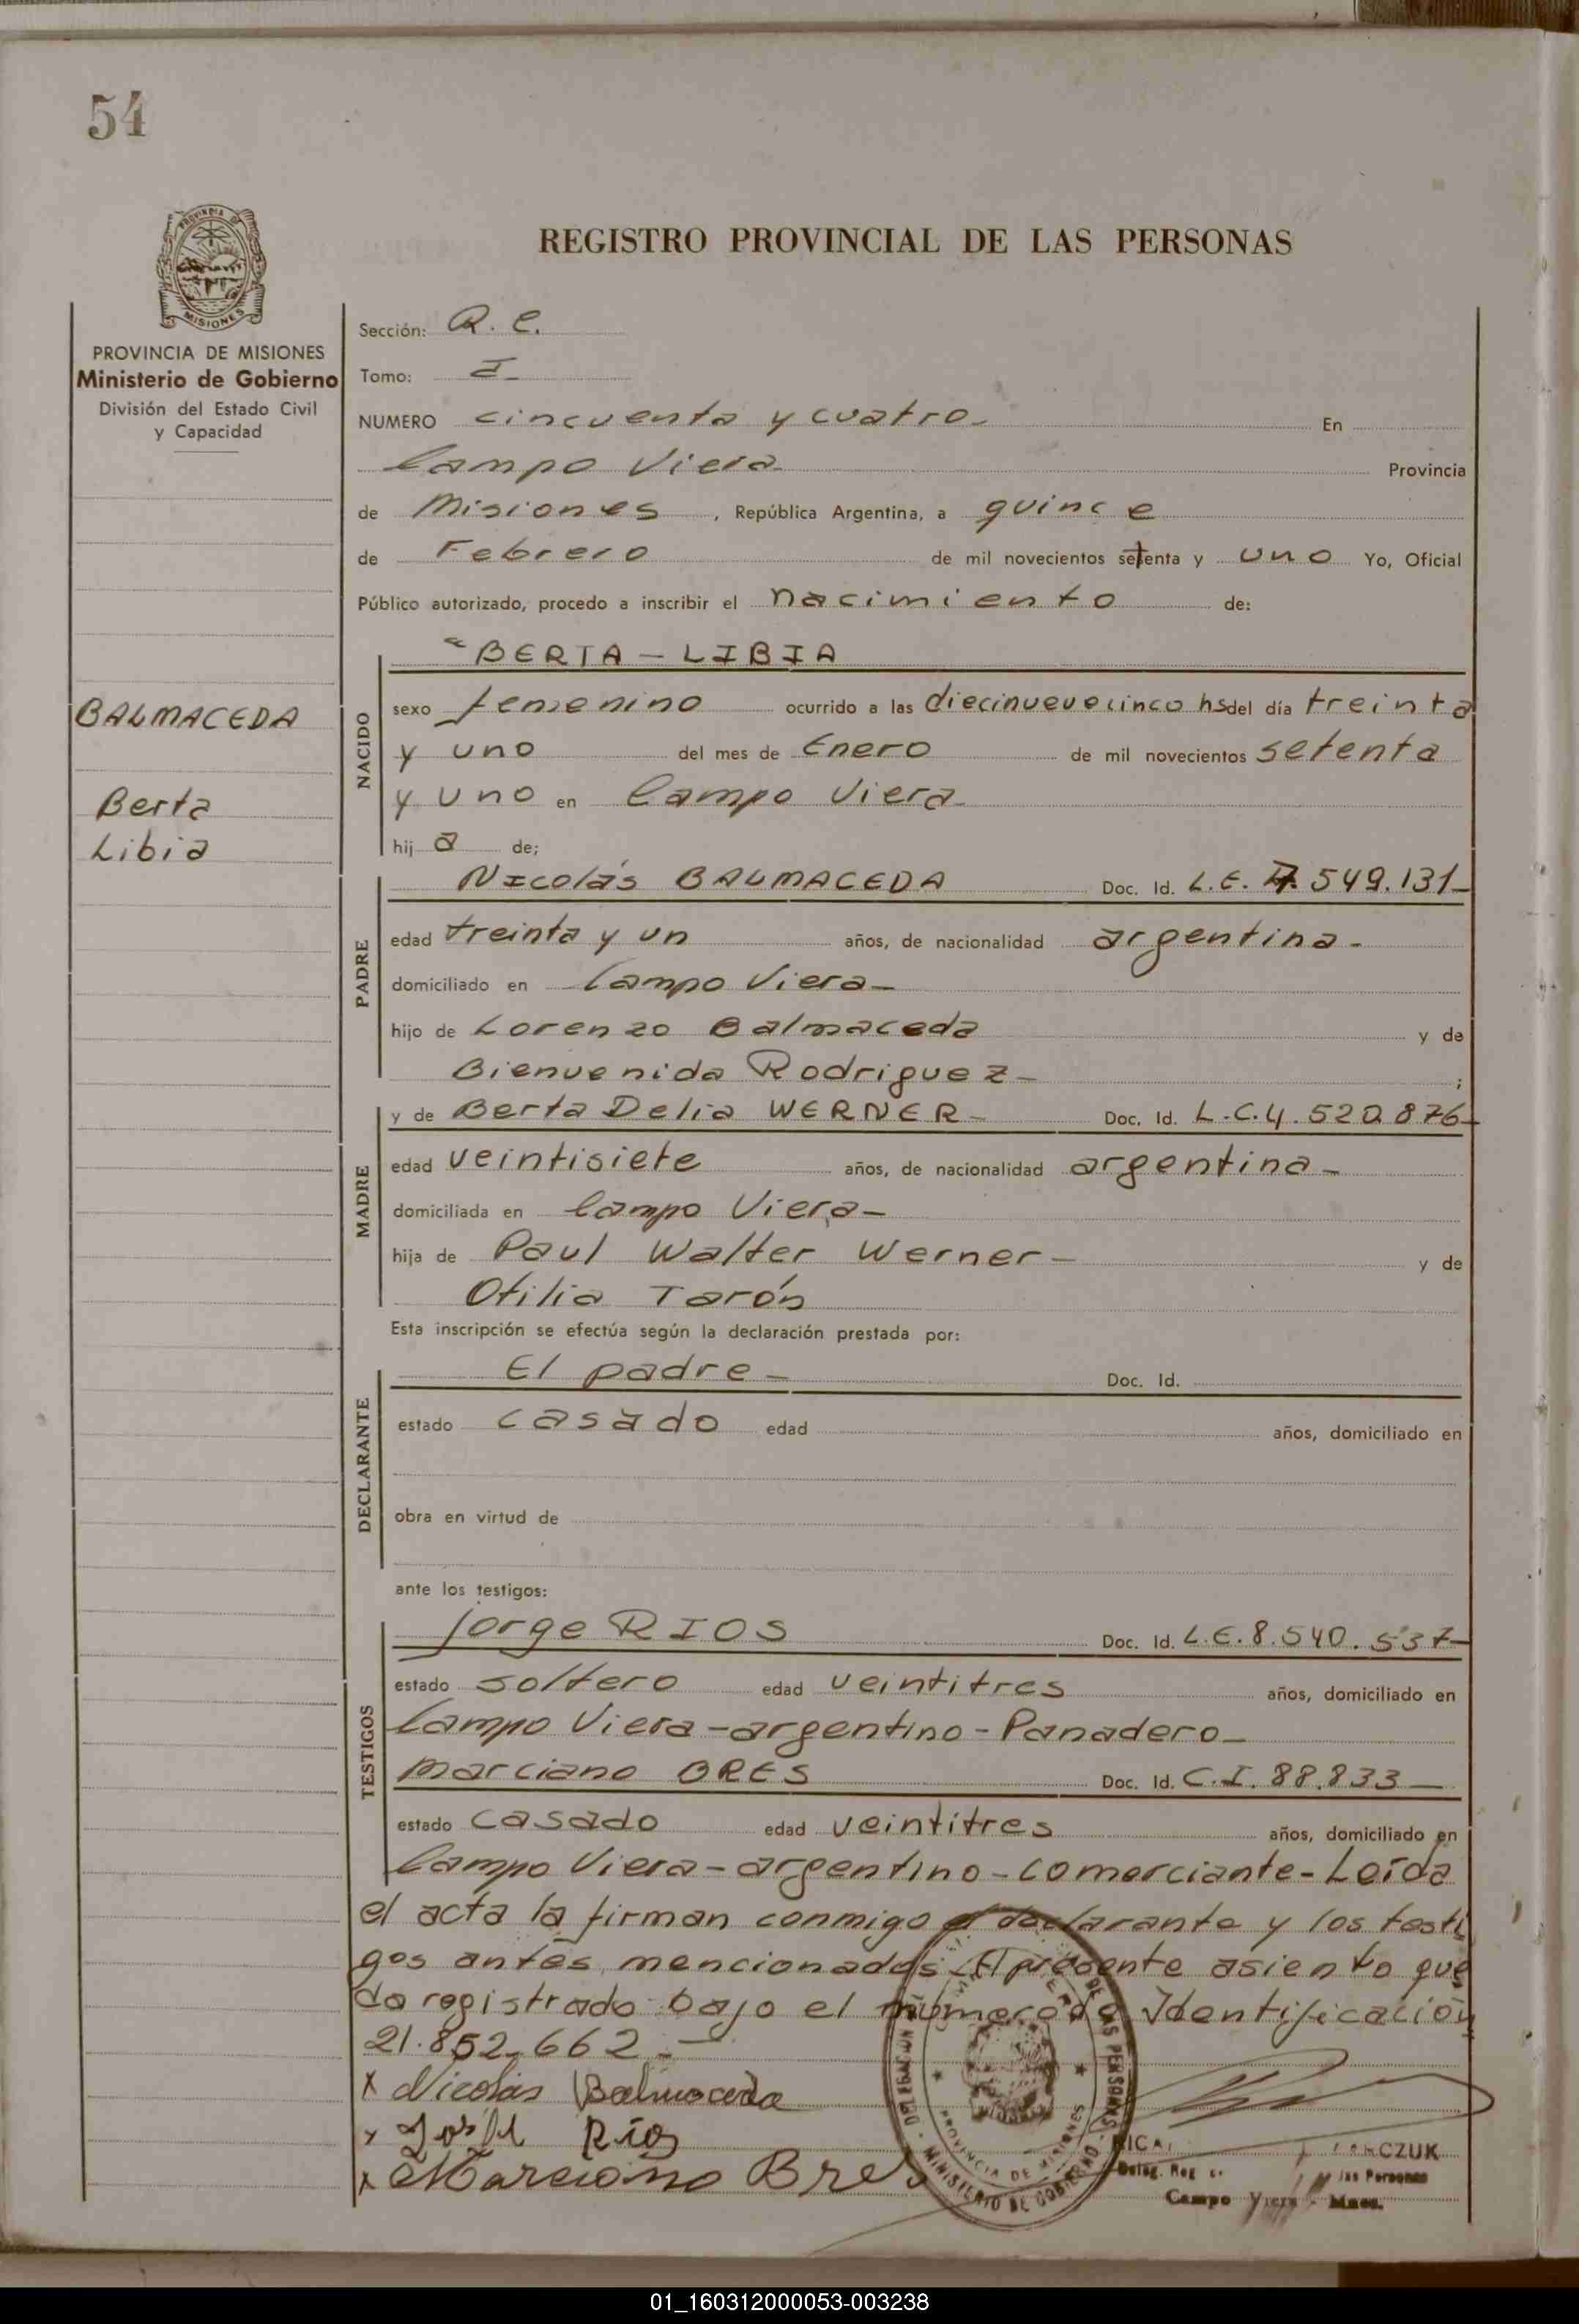 54
REGISTRO PROVINCIAL DE LAS PERSONAS
PROVINCIA DE
MISIONES
PROVINCIA DE MISIONES
Ministerio de Gobierno
División del Estado Civil
y Capacidad
BALMACEDA
Berta
Libia
Sección:
Tomo: I
NUMERO cincuenta y cuatro- En
Campo Viera Provincia
de Misiones, República Argentina, a quince
de Febrero de mil novecientos setenta y uno Yo, Oficial
Público autorizado, procedo a inscribir el nacimiento de:
NACIDO
BERTA - LIBIA
sexo femenino ocurrido a las diecinueve cinco hs del día treinta
y uno del mes de Enero de mil novecientos setenta
y uno en Campo Viera
hija de;
PADRE
Nicolás BALMACEDA Doc. Id. L.E. 7.549.131-
edad treinta y un años, de nacionalidad argentina-
domiciliado en Campo Viera-
hijo de Lorenzo Balmaceda y de
Bienvenida Rodriguez- ;
MADRE
y de Berta Delia WERNER- Doc. Id. L.C.4.520.876-
edad veintisiete años, de nacionalidad argentina-
domiciliada en Campo Viera-
hija de Paul Walter Werner- y de
Otilia Tarón
Esta inscripción se efectúa según la declaración prestada por:
DECLARANTE
El padre- Doc. Id.
estado casado edad años, domiciliado en
obra en virtud de
ante los testigos:
TESTIGOS
Jorge RIOS Doc. Id. L.E.8.540.537-
estado soltero edad veintitres años, domiciliado en
Campo Viera-argentino-Panadero-
Marciano BRES Doc. Id. C.I. 88.833-
estado casado edad veintitres años, domiciliado en
Campo Viera-argentino-comerciante-Leída
el acta la firman conmigo el declarante y los testi
gos antes mencionados-El presente asiento que
da registrado bajo el número de Identificación
21.852.662.-
x Nicolás Balmaceda
x Ríos
x Marciano Bres
DELEGACION
DE LAS PERSONAS
PROVINCIA DE MISIONES
MINISTERIO DE GOBIERNO
CZUK
las Personas
Campo Viera - Mnes.
01_160312000053-003238